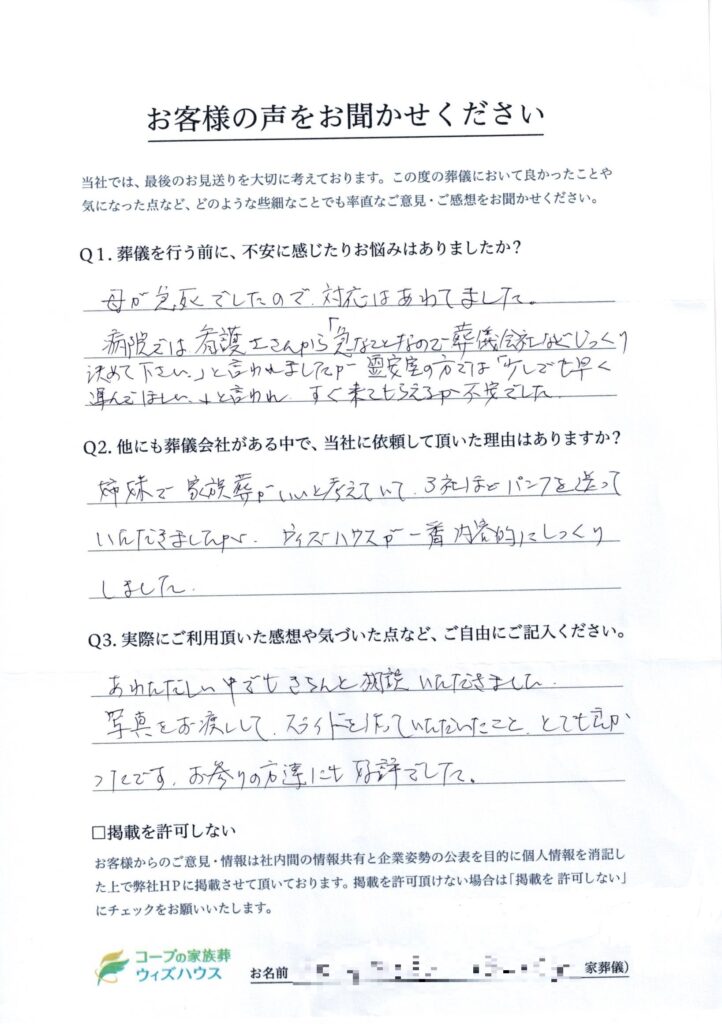 お客様の声をお聞かせください
当社では、最後のお見送りを大切に考えております。この度の葬儀において良かったことや
気になった点など、どのような些細なことでも率直なご意見・ご感想をお聞かせください。
Q1. 葬儀を行う前に、不安に感じたりお悩みはありましたか?
母が急死でしたので、対応はあわてました。
病院では看護士さんから「急なことなので葬儀会社などじっくり
決めて下さい。」と言われましたが、霊安室の方では「少しでも早く
運んでほしい。」と言われ、すぐ来てもらえるか不安でした。
Q2. 他にも葬儀会社がある中で、当社に依頼して頂いた理由はありますか?
姉妹で家族葬がいいと考えていて、3社ほどパンフを送って
いただきましたが、ウィズハウスが一番内容的にしっくり
しました。
Q3. 実際にご利用頂いた感想や気づいた点など、ご自由にご記入ください。
あわただしい中でもきちんと相談いただきました。
写真をお渡しして、スライドを作っていただいたこと、とても良か
ったです。お参りの方達にも好評でした。
□掲載を許可しない
お客様からのご意見・情報は社内間の情報共有と企業姿勢の公表を目的に個人情報を消記し
た上で弊社HPに掲載させて頂いております。掲載を許可頂けない場合は「掲載を 許可しない」
にチェックをお願いいたします。
コープの家族葬
ウィズハウス
お名前 家葬儀)